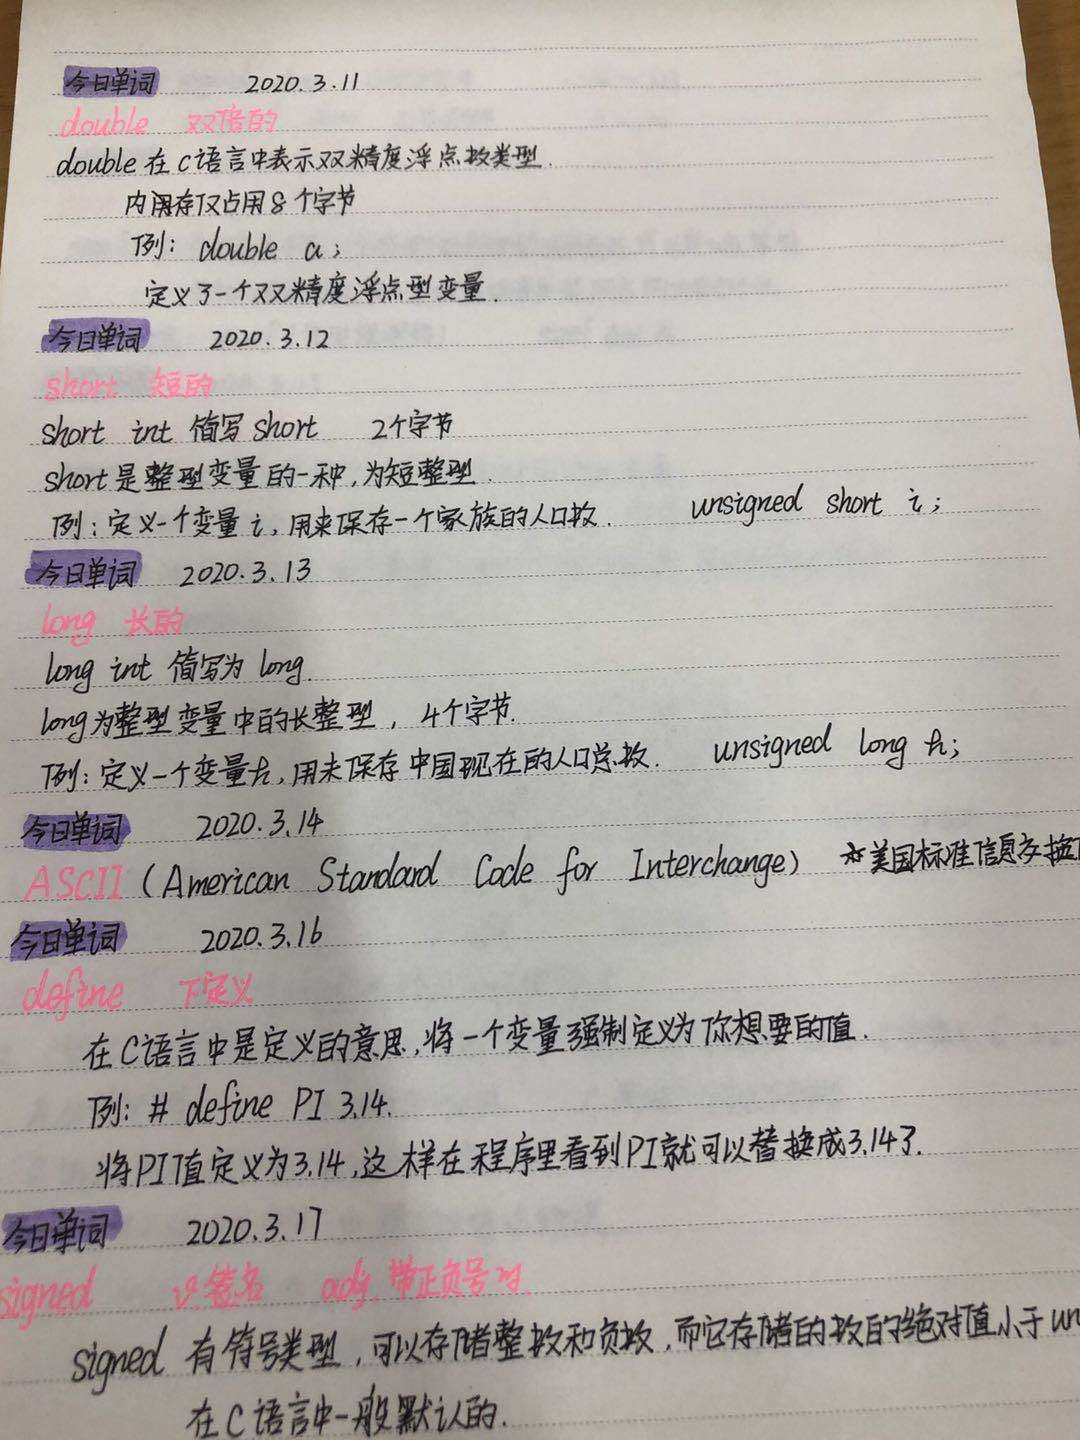 今日单词 2020.3.11
double 双倍的
double在C语言中表示双精度浮点数类型.
内存仅占用8个字节
例: double a;
定义了一个双精度浮点型变量.
今日单词 2020.3.12
short 短的
short int 简写short 2个字节
short是整型变量的一种,为短整型.
例:定义一个变量i,用来保存一个家族的人口数. unsigned short i;
今日单词 2020.3.13
long 长的
long int 简写为 long.
long为整型变量中的长整型, 4个字节.
例:定义一个变量h,用来保存中国现在的人口总数. unsigned long h;
今日单词 2020.3.14
ASCII (American Standard Code for Interchange) ☆美国标准信息交换
今日单词 2020.3.16
define 下定义
在C语言中是定义的意思,将一个变量强制定义为你想要的值.
例: # define PI 3.14.
将PI值定义为3.14,这样在程序里看到PI就可以替换成3.14了.
今日单词 2020.3.17
signed v.签名 adj.带正负号的.
signed 有符号类型,可以存储整数和负数,而它存储的数的绝对值小于un
在C语言中一般默认的.